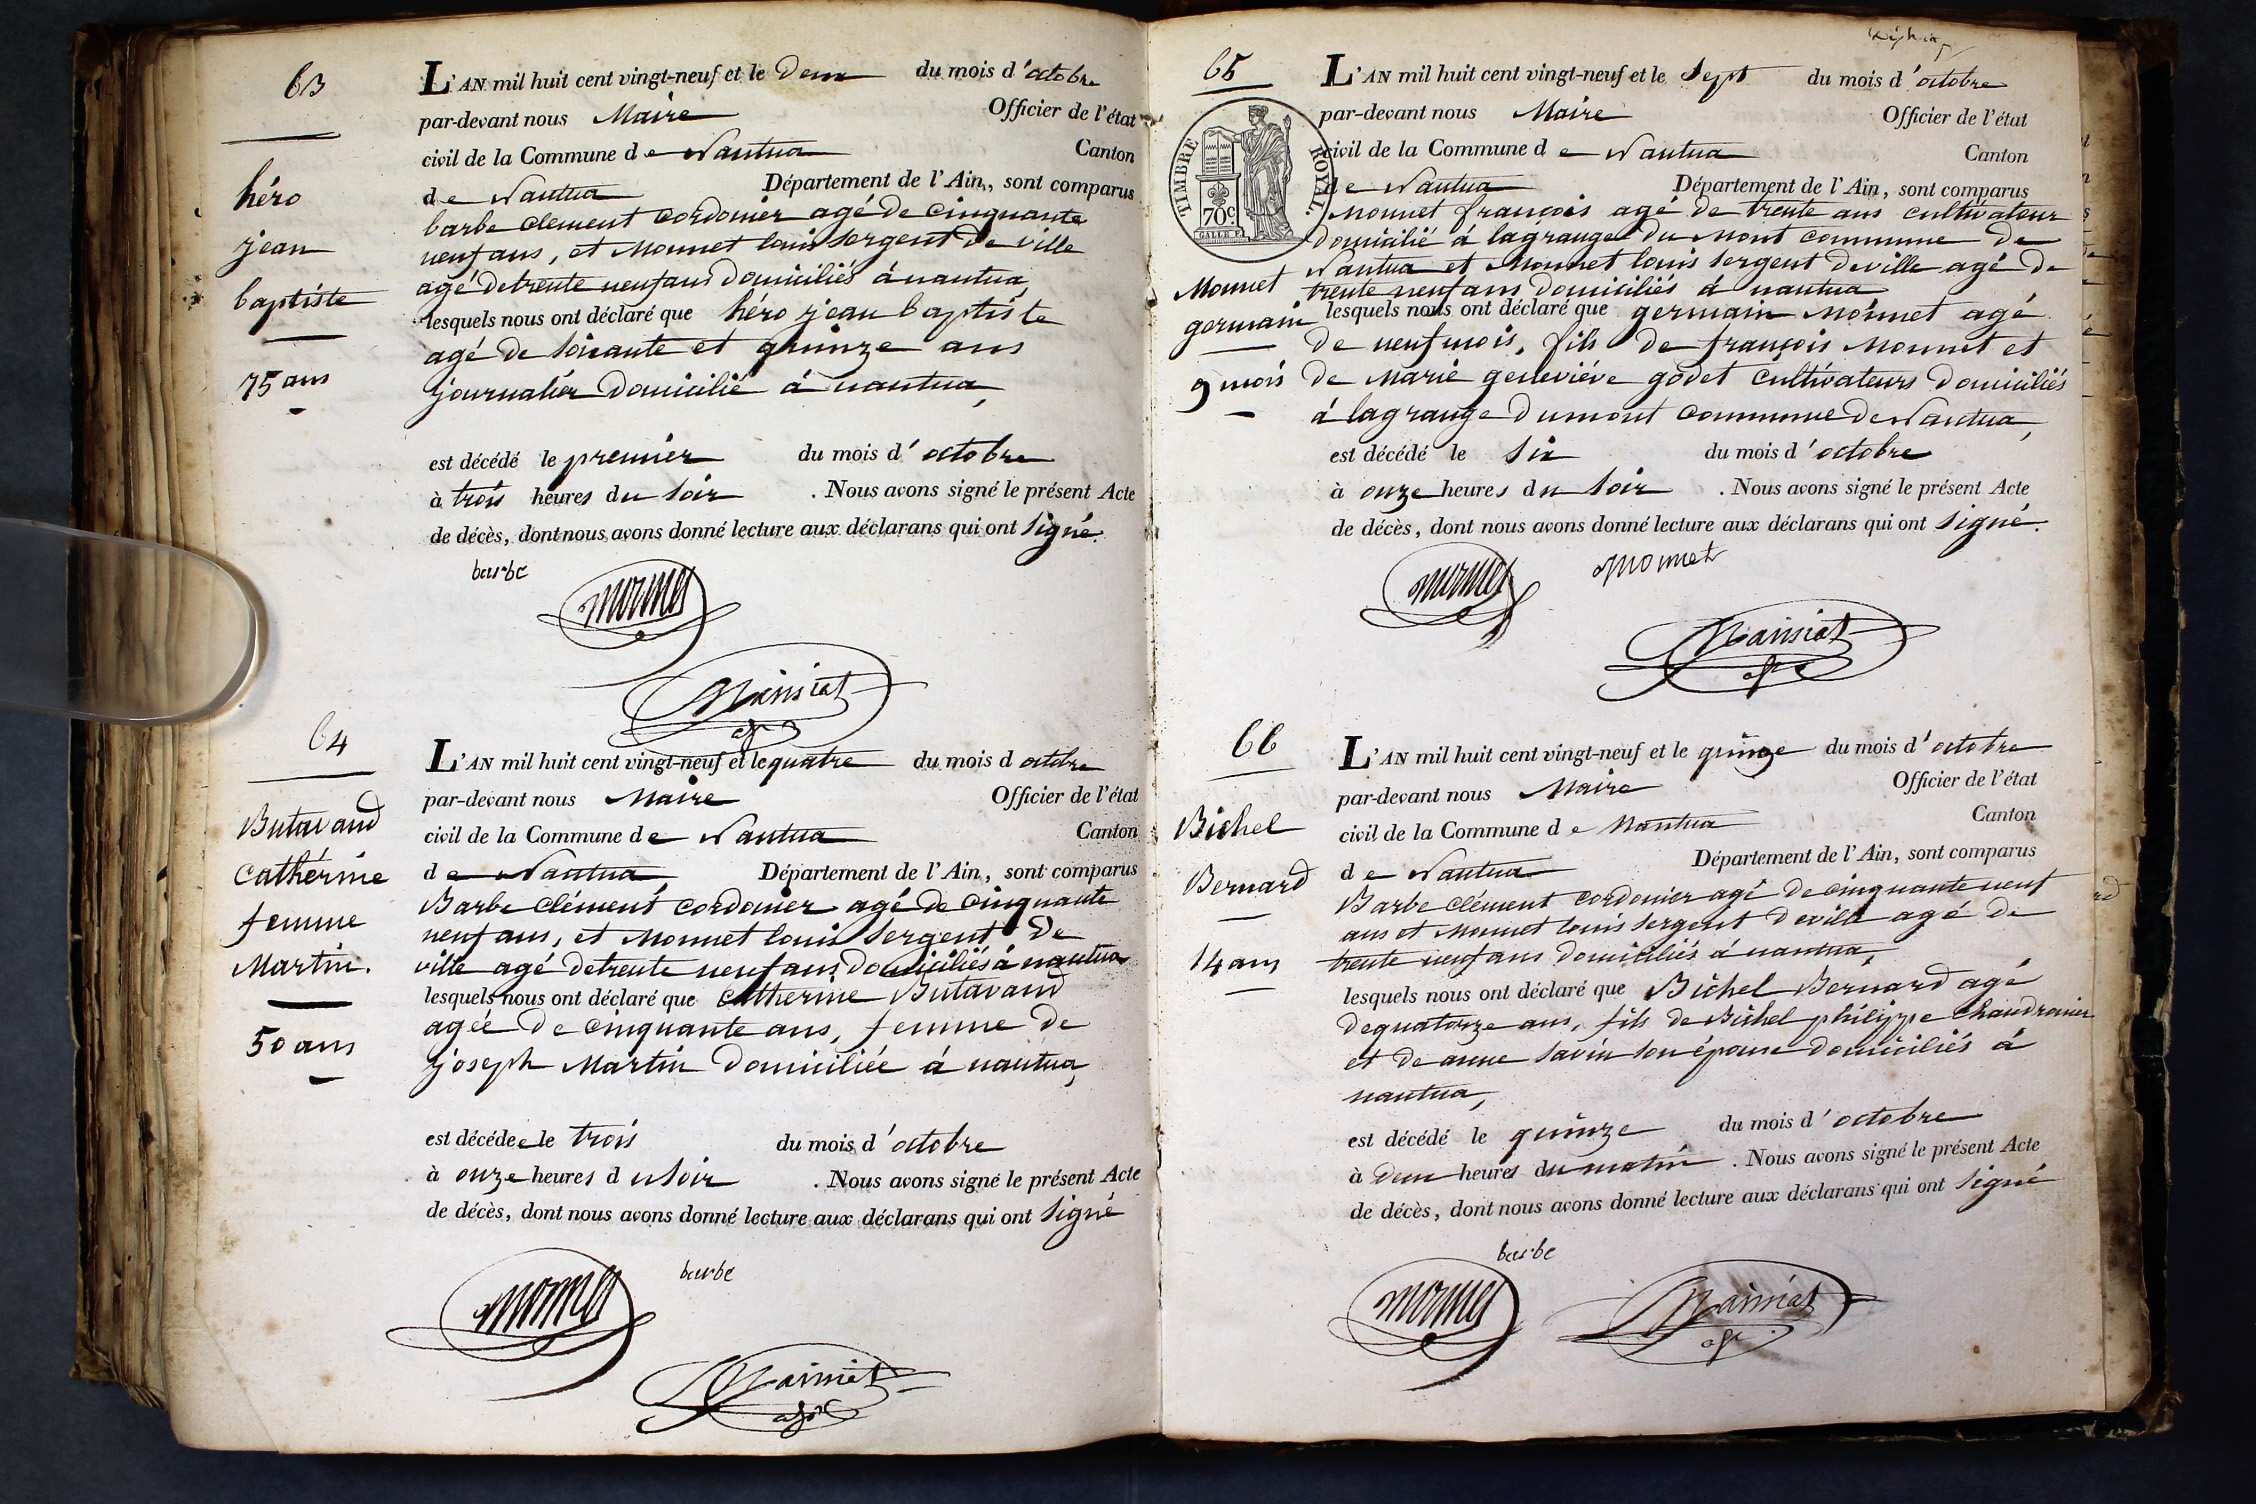 63
héro
jean
baptiste
75 ans
L'AN mil huit cent vingt-neuf et le deux du mois d'octobre
par-devant nous Maire Officier de l'état
civil de la Commune de Nantua Canton
de Nantua Département de l'Ain, sont comparus
barbe clement cordonier agé de cinquante
neuf ans, et Monnet louis sergent de ville
agé de trente neuf ans domiciliés à nantua,
lesquels nous ont déclaré que héro jean baptiste
agé de soixante et quinze ans
journalier domicilié à nantua,
est décédé le premier du mois d'octobre
à trois heures du soir . Nous avons signé le présent Acte
de décès, dont nous avons donné lecture aux déclarans qui ont signé.
barbe
monnet
64
Butavand
Cathérine
femme
Martin.
50 ans
L'AN mil huit cent vingt-neuf et le quatre du mois d octobre
par-devant nous Maire Officier de l'état
civil de la Commune de Nantua Canton
de Nantua Département de l'Ain, sont comparus
Barbe clément cordonier agé de cinquante
neuf ans, et Monnet louis sergent de
ville agé de trente neuf ans domiciliés à nantua
lesquels nous ont déclaré que catherine Butavand
agée de cinquante ans, femme de
joseph Martin domiciliée à nantua,
est décédée le trois du mois d'octobre
à onze heures du soir . Nous avons signé le présent Acte
de décès, dont nous avons donné lecture aux déclarans qui ont signé
barbe
monnet
65
TIMBRE ROYAL.
70c.
Monnet
germain
9 mois
L'AN mil huit cent vingt-neuf et le sept du mois d'octobre
par-devant nous Maire Officier de l'état
civil de la Commune de Nantua Canton
de Nantua Département de l'Ain, sont comparus
Monnet françois agé de trente ans cultivateur
domicilié à lagrange du Mont commune de
Nantua et Monnet louis sergent de ville agé de
trente neuf ans domiciliés à nantua
lesquels nous ont déclaré que germain Monnet agé
de neuf mois, fils de françois Monnet et
de Marie geneviéve godet cultivateurs domiciliés
à lagrange dumont commune de Nantua,
est décédé le six du mois d'octobre
à onze heures du soir . Nous avons signé le présent Acte
de décès, dont nous avons donné lecture aux déclarans qui ont signé.
monnet
monnet
66
Bichel
Bernard
14 ans
L'AN mil huit cent vingt-neuf et le quinze du mois d'octobre
par-devant nous Maire Officier de l'état
civil de la Commune de Nantua Canton
de Nantua Département de l'Ain, sont comparus
Barbe clément cordonier agé de cinquante neuf
ans et Monnet louis sergent de ville agé de
trente neuf ans domiciliés à nantua,
lesquels nous ont déclaré que Bichel Bernard agé
de quatorze ans, fils de Bichel philippe chaudronier
et de anne savin son épouse domiciliés à
nantua,
est décédé le quinze du mois d'octobre
à deux heures du matin . Nous avons signé le présent Acte
de décès, dont nous avons donné lecture aux déclarans qui ont signé
barbe
monnet